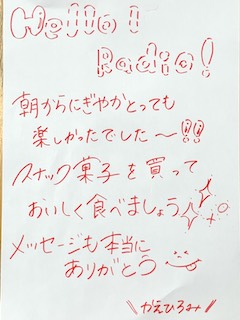 Hello!
Radio!
朝からにぎやかとっても
楽しかったでした〜!!
スナック菓子を買って
おいしく食べましょう
メッセージも本当に
ありがとう
\\かえひろみ//